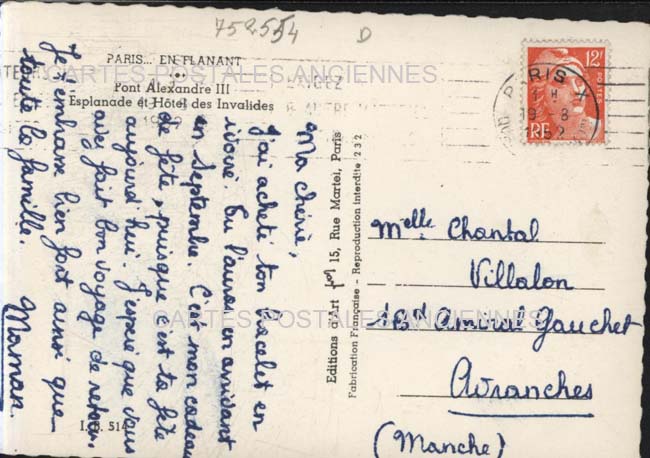 75 25 54
D
PARIS... EN FLANANT
Pont Alexandre III
Esplanade et Hôtel des Invalides
CARTES POSTALES ANCIENNES
12F
PARIS
19 8
RF
Ma chérie,
j'ai acheté ton bracelet en
ivoire. Tu l'auras en arrivant
en septembre. C'est mon cadeau
de fête, puisque c'est ta fête
aujourd'hui. J'espère que vous
avez fait bon voyage de retour.
Je t'embrasse bien fort ainsi que
toute la famille.
Maman.
I. B. 514
Editions d'Art 15, Rue Martel, Paris
Fabrication Française - Reproduction interdite 232
Melle Chantal
Villalon
Bd Amiral Gauchet
Avranches
(Manche)
CARTES POSTALES ANCIENNES